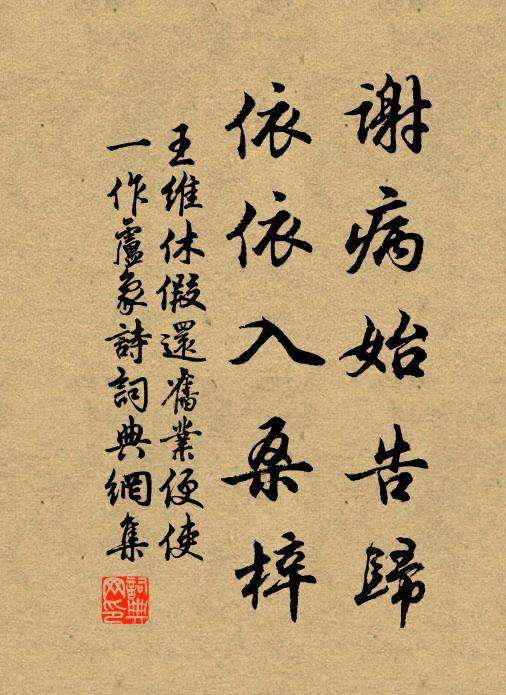 谢病始告歸
依依入桑梓
王維休假還舊業便使
一作盧象詩詞典網集
詞典网印